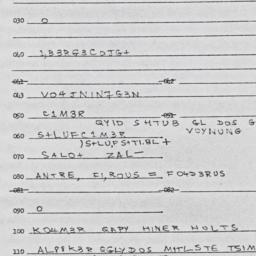 030 0
040 1,BBRG3CDJG+
041 042
043 VO4JNIN7G3N
050 C1M3R 051
QYID SHTUB GL DOS G
060 S+LUFC1M3R VOYNUNG
)S+LUFS+TI.BL+
070 SALO+ ZAL—
080 ANTRE, C1,ROUS = FO4D3RUS
081 082
090 0
100 KO4M3R GAPY MINER HOLTS
110 ALP8K3R GGLYDOS M+TLSTE TSIM